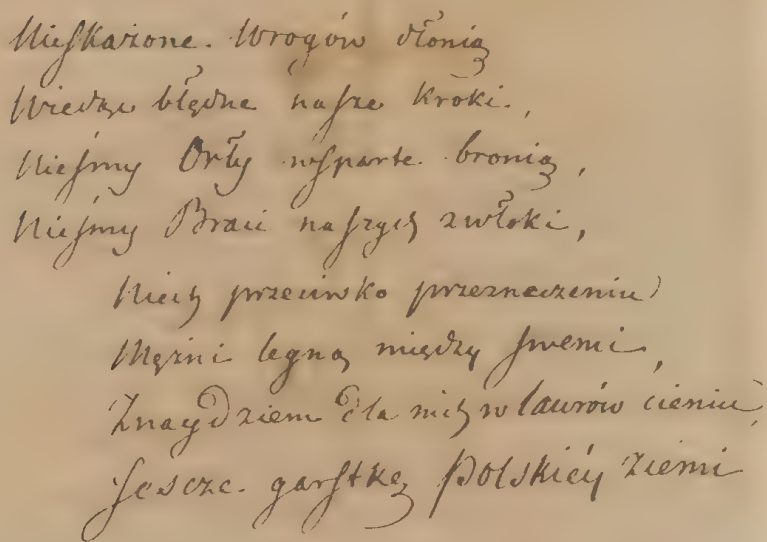 Nieskażone. Wrogów dłonią
Wiedząc błędne nasze kroki.,
Nieśmy Orły wsparte. bronią,
Nieśmy Braci naszych zwłoki,
Niech przeciwko przeznaczeniu
Mężni legną między swemi,
Znaydziem dla nich w laurów cieniu,
Jescze. garstkę Polskiéy Ziemi